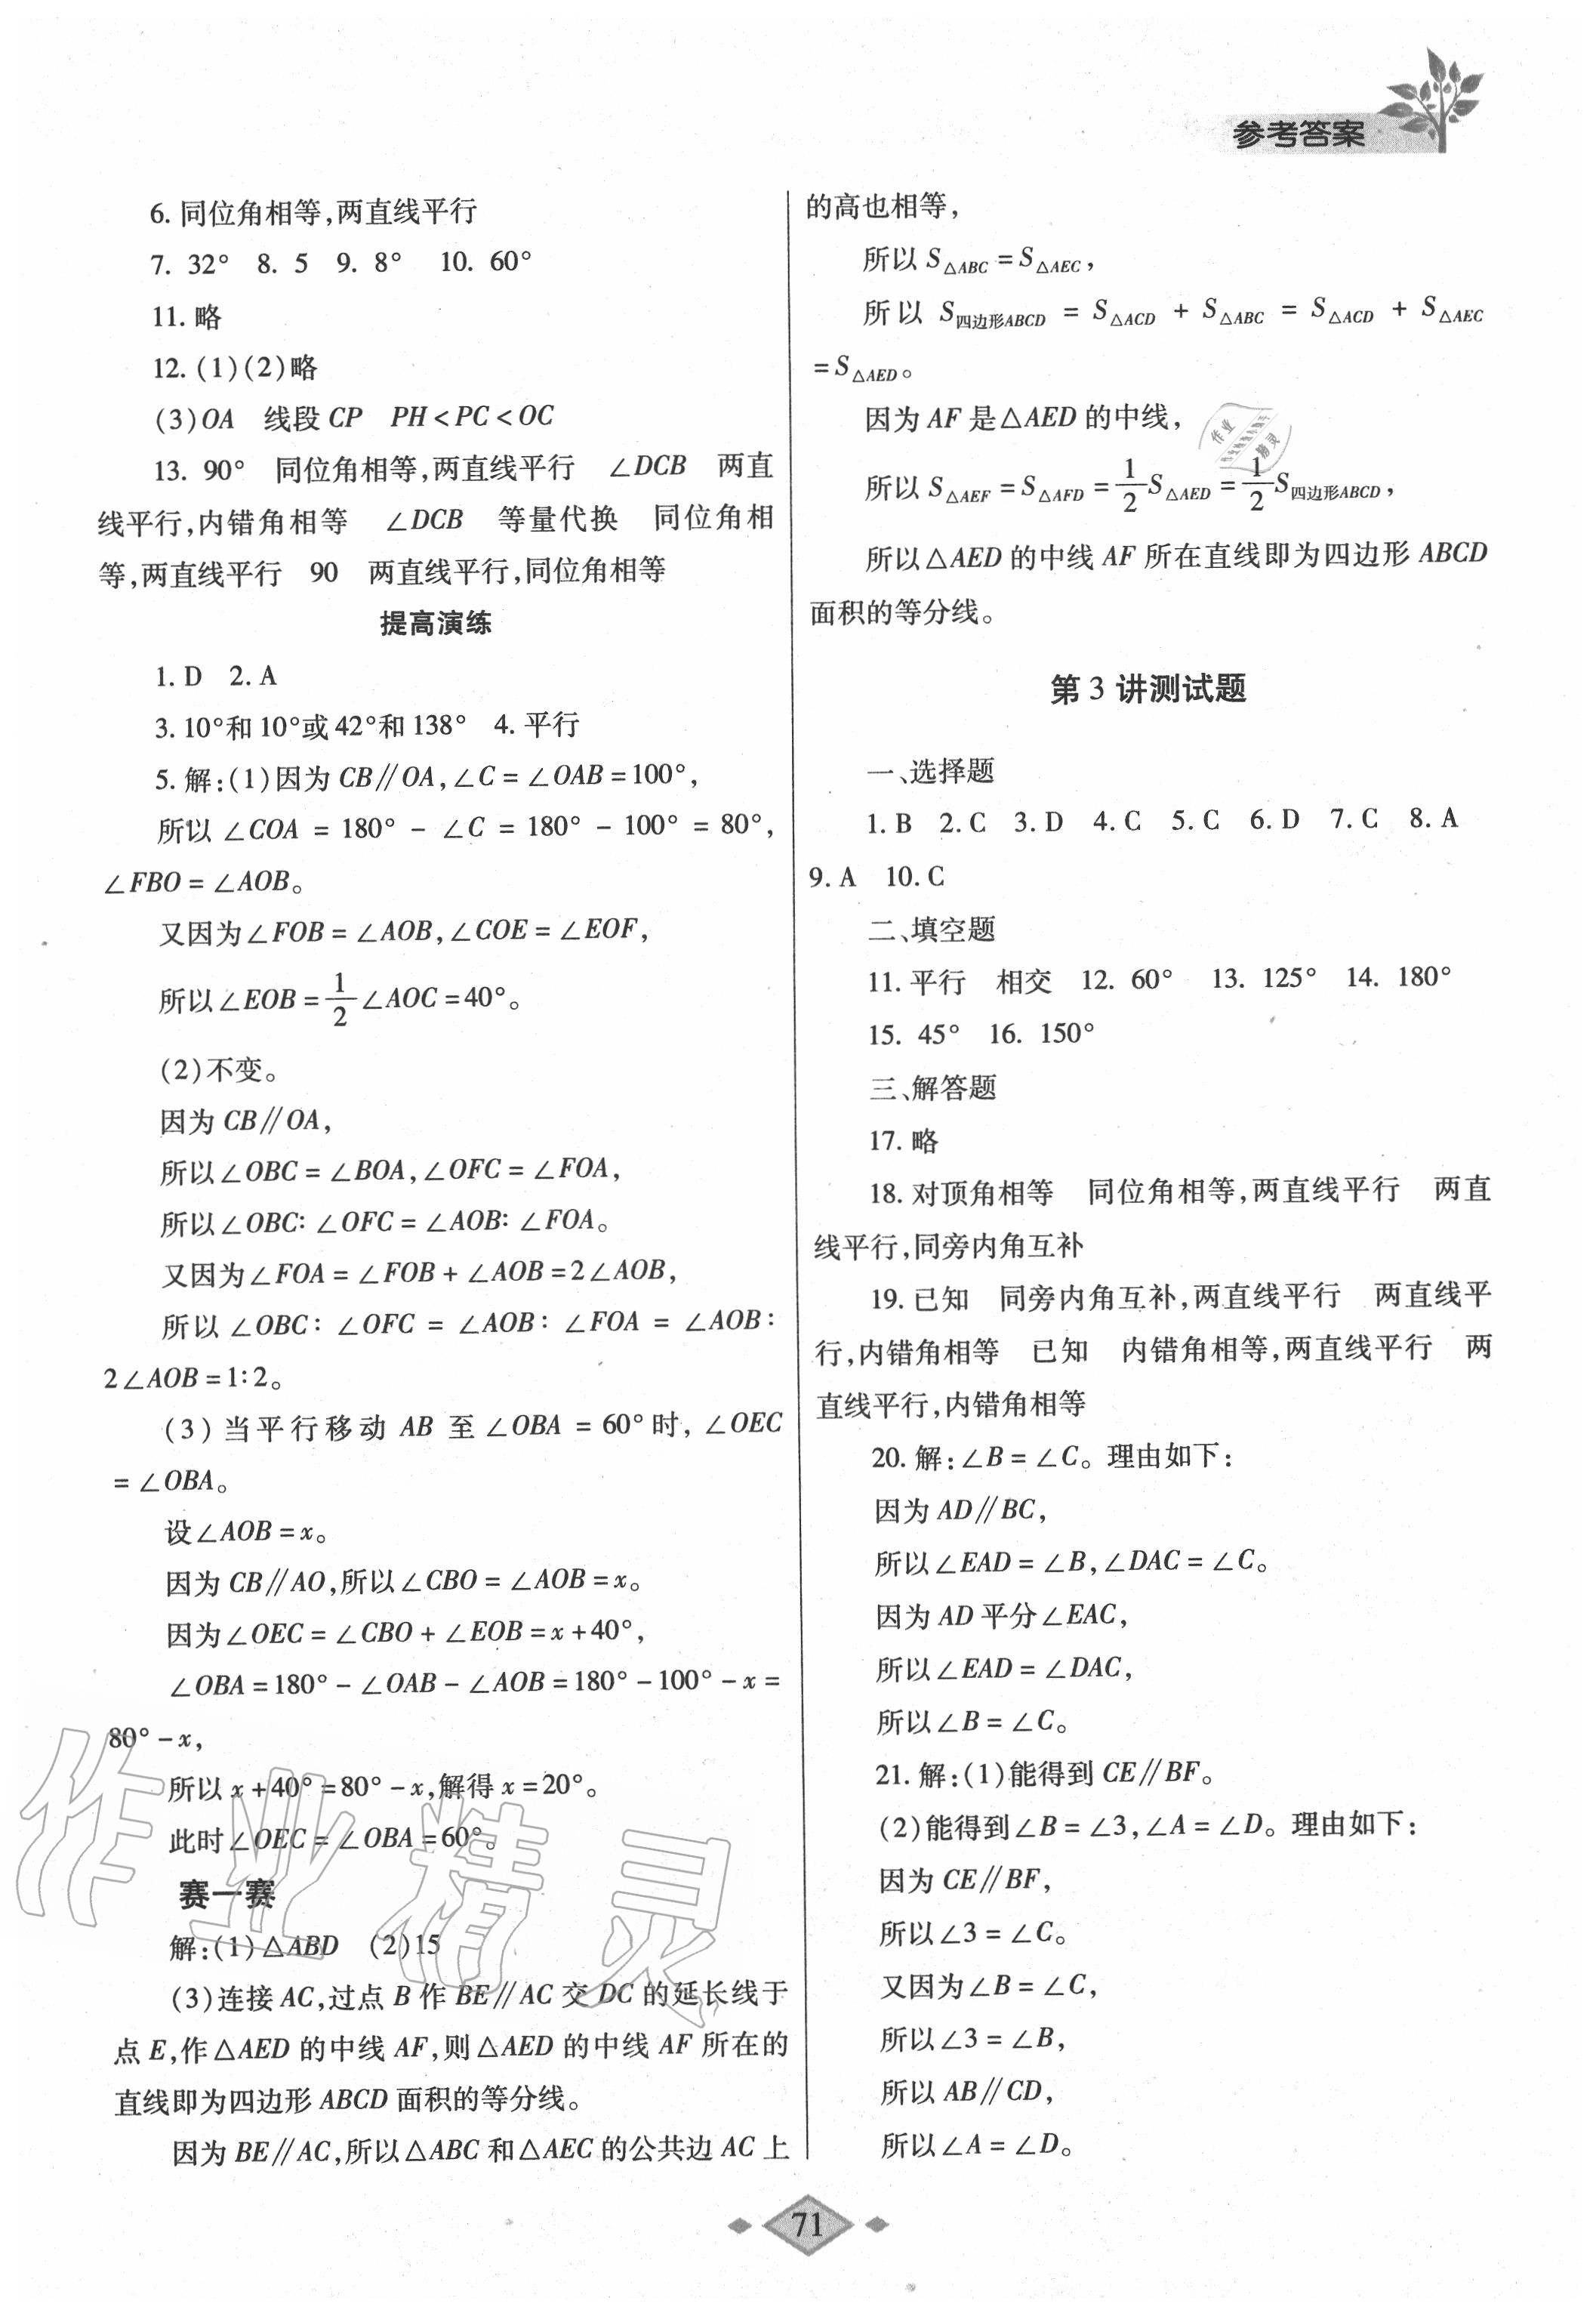 参考答案
6. 同位角相等,两直线平行
7. 32° 8. 5 9. 8° 10. 60°
11. 略
12. (1)(2)略
(3)OA 线段 CP PH<PC<OC
13. 90° 同位角相等,两直线平行 ∠DCB 两直
线平行,内错角相等 ∠DCB 等量代换 同位角相
等,两直线平行 90 两直线平行,同位角相等
提高演练
1. D 2. A
3. 10°和10°或42°和138° 4. 平行
5. 解:(1)因为 CB∥OA,∠C=∠OAB=100°,
所以 ∠COA = 180° - ∠C = 180° - 100° = 80°,
∠FBO=∠AOB。
又因为∠FOB=∠AOB,∠COE=∠EOF,
所以∠EOB=1/2∠AOC=40°。
(2)不变。
因为 CB∥OA,
所以∠OBC=∠BOA,∠OFC=∠FOA,
所以∠OBC:∠OFC=∠AOB:∠FOA。
又因为∠FOA=∠FOB+∠AOB=2∠AOB,
所以 ∠OBC:∠OFC = ∠AOB:∠FOA = ∠AOB:
2∠AOB=1:2。
(3)当平行移动 AB 至 ∠OBA = 60°时,∠OEC
=∠OBA。
设∠AOB=x。
因为 CB∥AO,所以∠CBO=∠AOB=x。
因为∠OEC=∠CBO+∠EOB=x+40°,
∠OBA=180°-∠OAB-∠AOB=180°-100°-x=
80°-x,
所以 x+40°=80°-x,解得 x=20°。
此时∠OEC=∠OBA=60°。
赛一赛
解:(1)△ABD (2)15
(3)连接 AC,过点 B 作 BE∥AC 交 DC 的延长线于
点 E,作△AED 的中线 AF,则△AED 的中线 AF 所在的
直线即为四边形 ABCD 面积的等分线。
因为 BE∥AC,所以△ABC 和△AEC 的公共边 AC 上
的高也相等,
所以 S△ABC=S△AEC,
所以 S四边形ABCD = S△ACD + S△ABC = S△ACD + S△AEC
=S△AED。
因为 AF 是△AED 的中线,
所以 S△AEF=S△AFD=1/2S△AED=1/2S四边形ABCD,
所以△AED 的中线 AF 所在直线即为四边形 ABCD
面积的等分线。
第 3 讲测试题
一、选择题
1. B 2. C 3. D 4. C 5. C 6. D 7. C 8. A
9. A 10. C
二、填空题
11. 平行 相交 12. 60° 13. 125° 14. 180°
15. 45° 16. 150°
三、解答题
17. 略
18. 对顶角相等 同位角相等,两直线平行 两直
线平行,同旁内角互补
19. 已知 同旁内角互补,两直线平行 两直线平
行,内错角相等 已知 内错角相等,两直线平行 两
直线平行,内错角相等
20. 解:∠B=∠C。理由如下:
因为 AD∥BC,
所以∠EAD=∠B,∠DAC=∠C。
因为 AD 平分∠EAC,
所以∠EAD=∠DAC,
所以∠B=∠C。
21. 解:(1)能得到 CE∥BF。
(2)能得到∠B=∠3,∠A=∠D。理由如下:
因为 CE∥BF,
所以∠3=∠C。
又因为∠B=∠C,
所以∠3=∠B,
所以 AB∥CD,
所以∠A=∠D。
作业精灵
作业
精灵
71